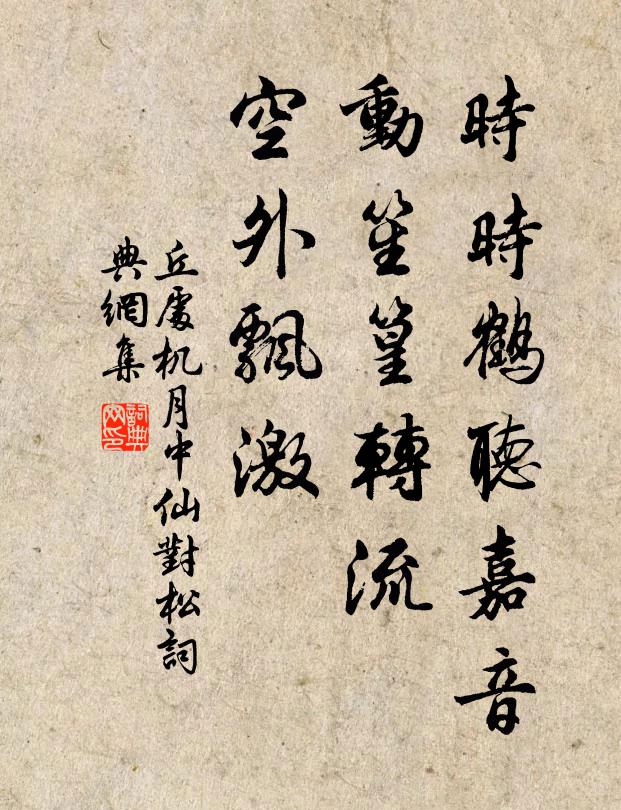 時時鶴聽嘉音
動笙篁轉流
空外飄激
丘處机月中仙對松詞
典網集
詞典
网印